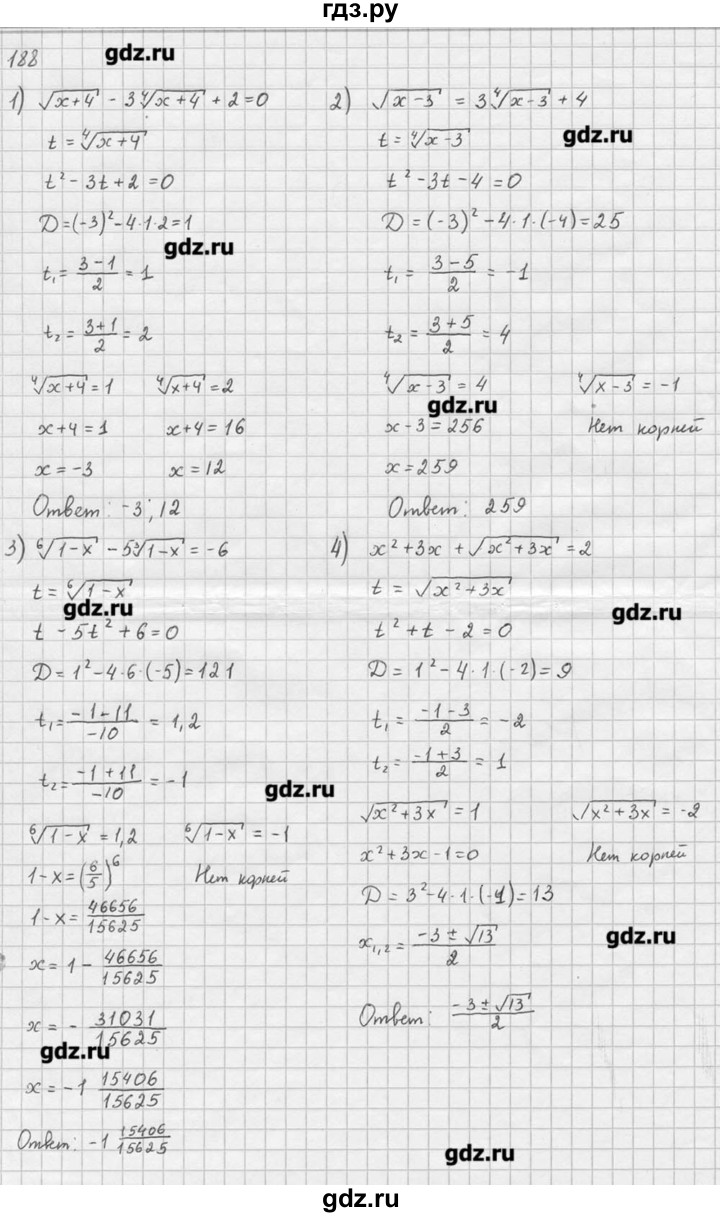 гдз.ру
188
gdz.ru
1) √(x+4) - 3⁴√(x+4) + 2 = 0
t = ⁴√(x+4)
t² - 3t + 2 = 0
D = (-3)² - 4·1·2 = 1
gdz.ru
t₁ = (3-1)/2 = 1
t₂ = (3+1)/2 = 2
⁴√(x+4) = 1    ⁴√(x+4) = 2
x+4 = 1    x+4 = 16
x = -3    x = 12
Ответ: -3; 12
2) √(x-3) = 3⁴√(x-3) + 4
gdz.ru
t = ⁴√(x-3)
t² - 3t - 4 = 0
D = (-3)² - 4·1·(-4) = 25
t₁ = (3-5)/2 = -1
t₂ = (3+5)/2 = 4
⁴√(x-3) = 4    ⁴√(x-3) = -1
gdz.ru
x-3 = 256    Нет корней
x = 259
Ответ: 259
3) ⁶√(1-x) - 5³√(1-x) = -6
t = ⁶√(1-x)
gdz.ru
t - 5t² + 6 = 0
D = 1² - 4·6·(-5) = 121
t₁ = (-1-11)/(-10) = 1,2
t₂ = (-1+11)/(-10) = -1
gdz.ru
⁶√(1-x) = 1,2    ⁶√(1-x) = -1
1-x = (6/5)⁶    Нет корней
1-x = 46656/15625
x = 1 - 46656/15625
x = - 31031/15625
gdz.ru
x = -1 15406/15625
Ответ: -1 15406/15625
4) x² + 3x + √(x²+3x) = 2
t = √(x²+3x)
gdz.ru
t² + t - 2 = 0
D = 1² - 4·1·(-2) = 9
t₁ = (-1-3)/2 = -2
t₂ = (-1+3)/2 = 1
√(x²+3x) = 1    √(x²+3x) = -2
x² + 3x - 1 = 0    Нет корней
D = 3² - 4·1·(-1) = 13
x₁,₂ = (-3±√13)/2
gdz.ru
Ответ: (-3±√13)/2
gdz.ru
gdz.ru